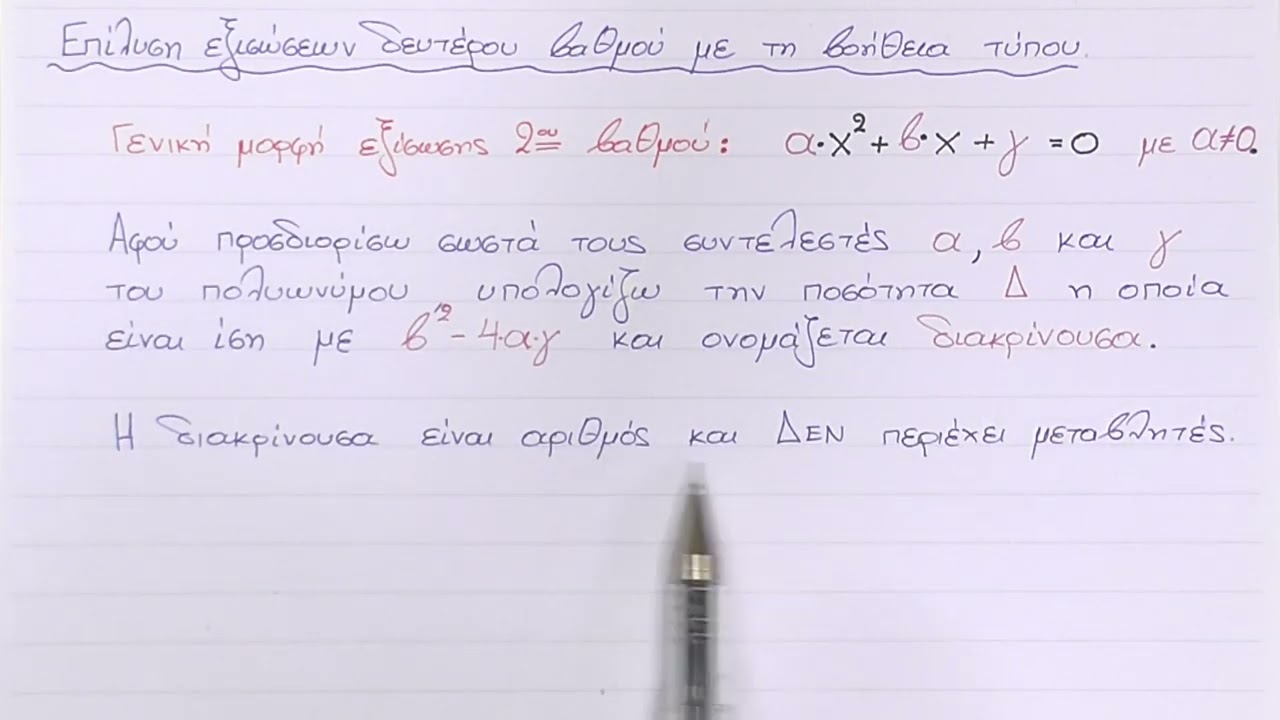 Επίλυση εξισώσεων δευτέρου βαθμού με τη βοήθεια τύπου.
Γενική μορφή εξίσωσης 2ου βαθμού: α·x²+β·x+γ=0 με α≠0.
Αφού προσδιορίσω σωστά τους συντελεστές α, β και γ
του πολυωνύμου υπολογίζω την ποσότητα Δ η οποία
είναι ίση με β²-4·α·γ και ονομάζεται διακρίνουσα.
Η διακρίνουσα είναι αριθμός και ΔΕΝ περιέχει μεταβλητές.